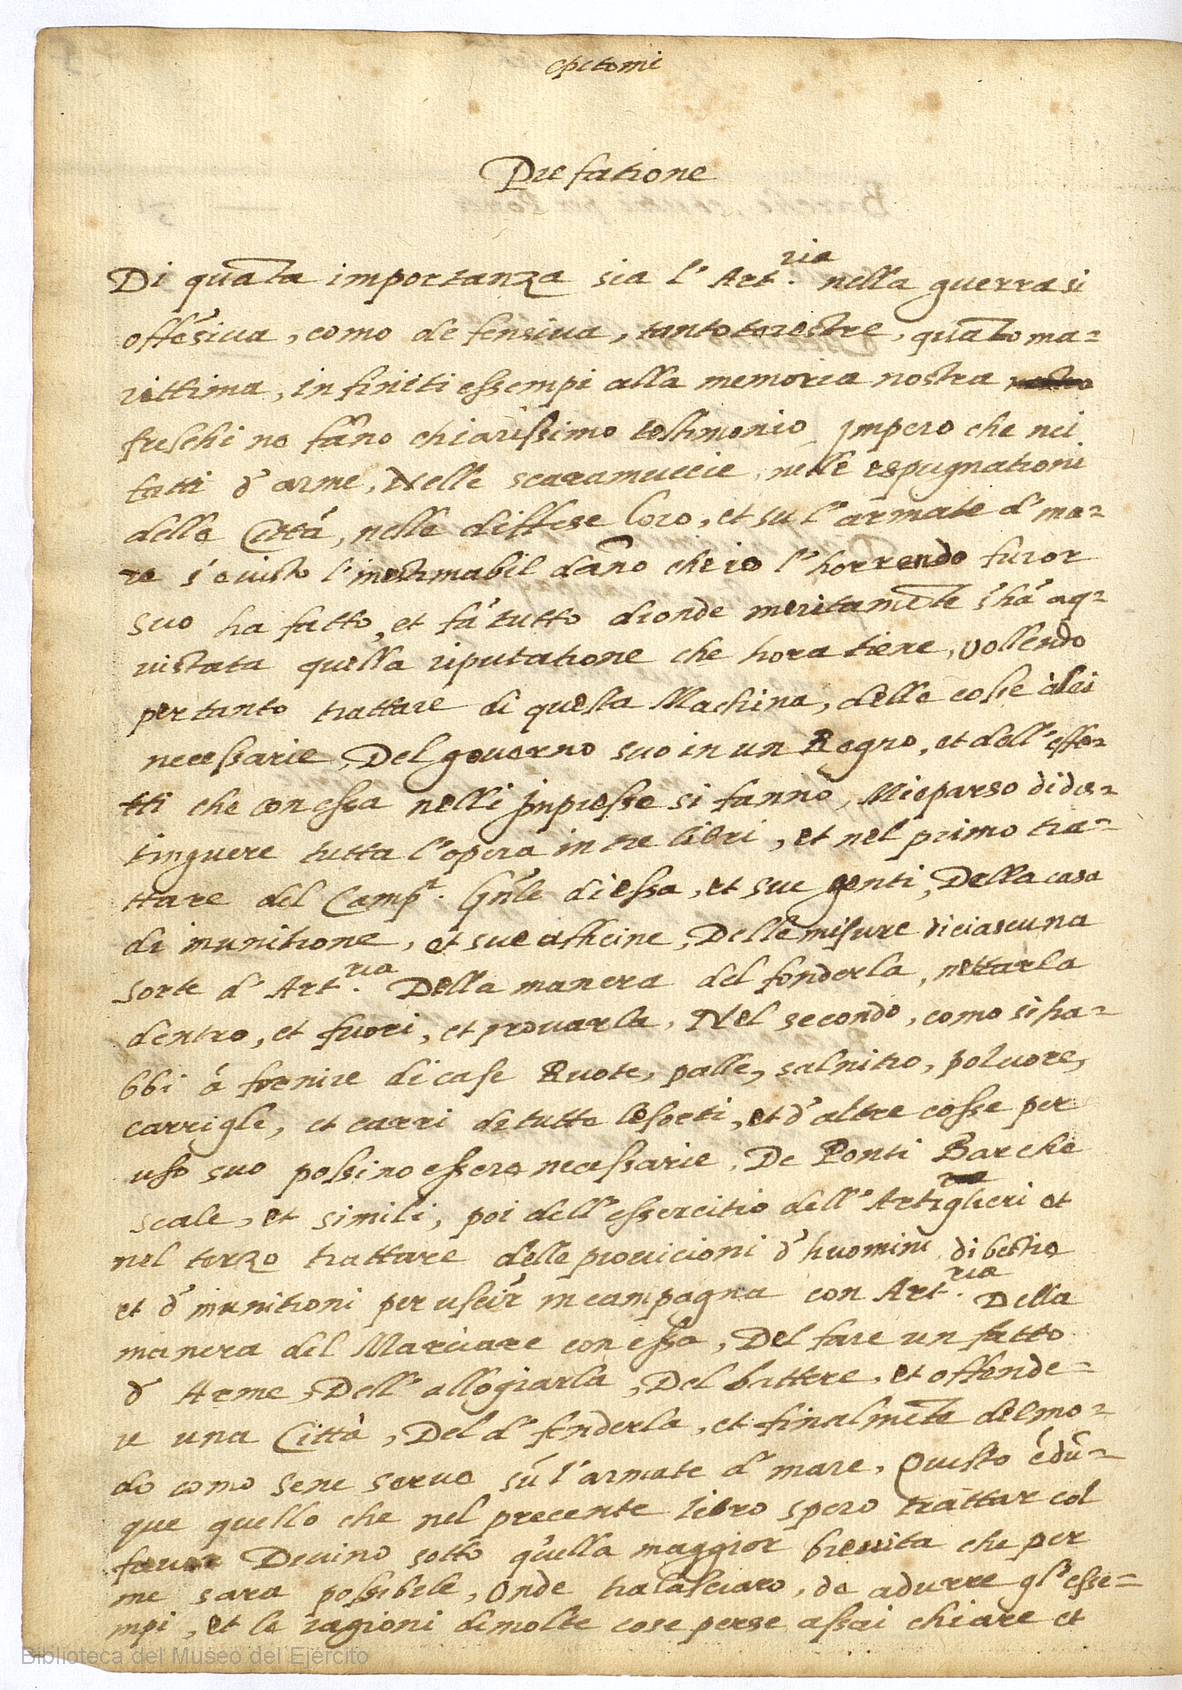 epitomi
Prefatione
Di quãta importanza sia l' Art.ria nella guerra si
offẽsiva, como defensiua, tanto terestre, quãto ma=
rittima, infiniti essempi alla memoria nostra
freschi ne fãno chiarissimo testimonio Impero che nei
fatti d' arme, Nelle scaramuccie nelle espugnationi
delle Città, nelle diffese loro, et su l' armate d' ma=
re s' è uisto l' inestimabil dãno che l' horrendo furor
suo ha fatto, et fà tutto dionde meritamẽte s' hà aq=
uistata quella riputatione che hora tiene, Vollendo
per tanto trattare di questa Machina, delle cosse à lei
necessarie, Del gouerno suo in un Regno, et dell' effe=
tti che con essa nelli Impresse si fanno, Mi è parso di dis=
tinguere tutta l' opera in tre libri, et nel primo tra=
ttare del Camp.t Gñle di essa, et sue genti, Della casa
di munitione, et sue officine, Delle misure di ciascuna
sorte d' Art.ria Della manera del fonderla, nettarla
dentro, et fuori, et prouarla, Nel secondo, como si ha=
bbi á fornire di casse Ruote, palle, salnitro, poluore,
carrigli, et carri de tutte le sorti, et d' altre cosse per
uso suo possino essere necessarie, De Ponti Barche
scale, et simili, poi dell' essercitio dell' Artiglieri et
nel terzo trattare delle prouicioni d' huomini di bestie
et d' munitioni per uscir in campagna con Art.ria Della
manera del Marciare con essa, Del fare un fatto
d' Arme, Dell' allogiarla, Del battere, et offende=
r una Città, Del d' fenderla, et finalmẽte del mo=
do como sene serue sú l' armate d' mare, Questo é dũ=
que quello che nel precente libro spero trattar col
fauor Deuino sotto quella maggior breuita che per
me sara possibele, Onde tralasciaro, de adurre gl' esse=
mpi, et le ragioni di molte cose perse assai chiare et
Biblioteca del Museo del Ejército